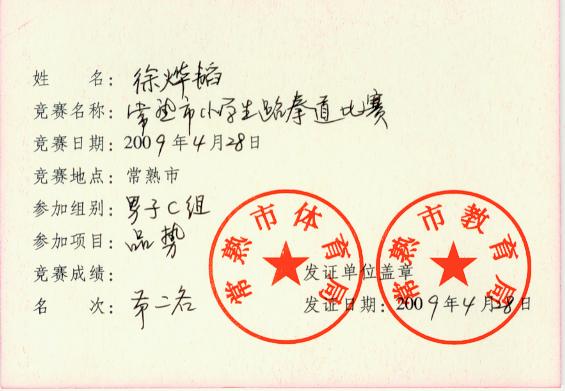 姓 名：徐烨韬
竞赛名称：常熟市小学生跆拳道比赛
竞赛日期：2009年4月28日
竞赛地点：常熟市
参加组别：男子C组
参加项目：品势
竞赛成绩：
名 次：第二名
常熟市体育局
常熟市教育局
发证单位盖章
发证日期：2009年4月28日